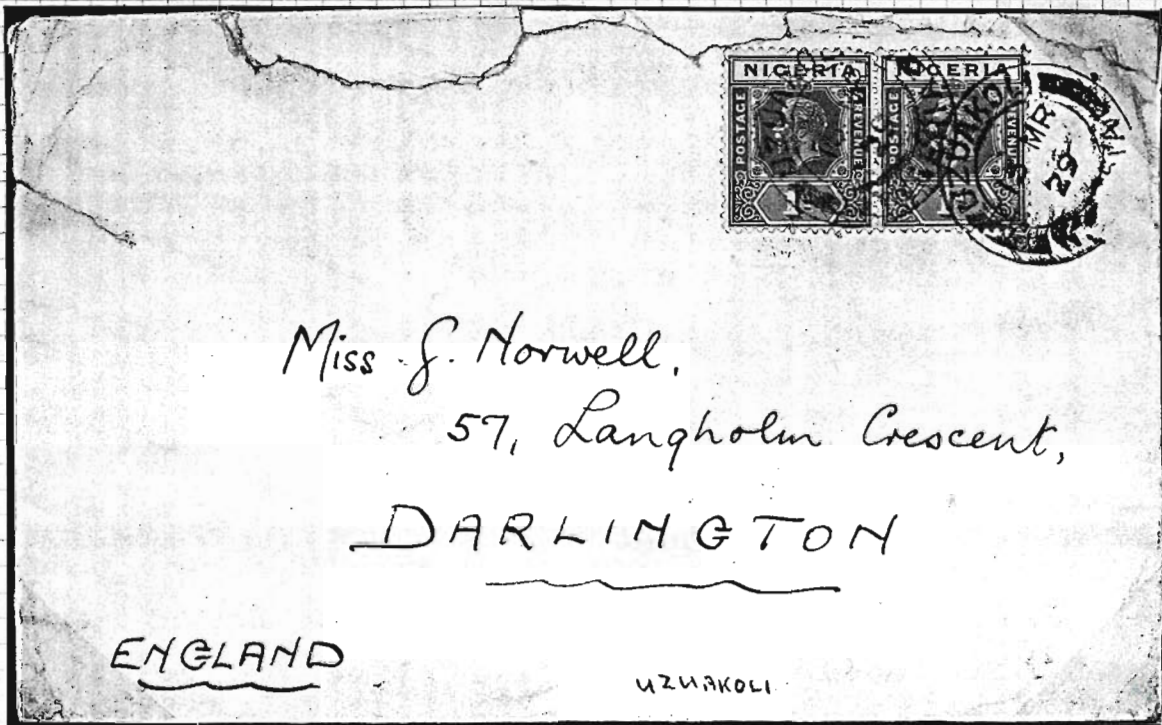 NIGERIA NIGERIA
POSTAGE REVENUE POSTAGE REVENUE
UZUAKOLI
MR
29
Miss G. Norwell.
57, Langholm Crescent,
DARLINGTON
ENGLAND
UZUAKOLI